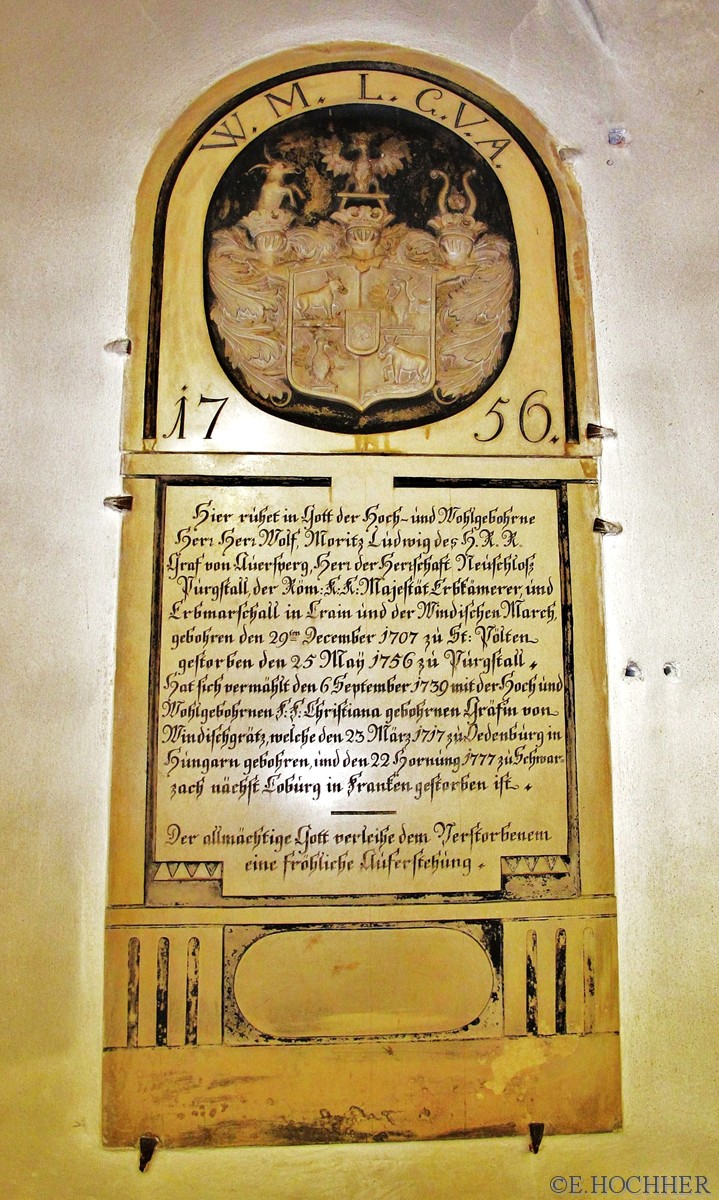 W. M. L. C. V. A.
17 56.
Hier rühet in Gott der Hoch- und Wohlgebohrne
Herr Herr Wolf, Moritz Ludwig des H. R. R.
Graf von Auersperg, Herr der Herrschaft Neüschloß
Pürgstall, der Röm: K. K: Majestät Erbkämerer, und
Erbmarschall in Crain und der Windischen March,
gebohren den 29ten December 1707 zü St: Pölten
gestorben den 25 Maÿ 1756 zü Pürgstall.
Hat sich vermählt den 6 September 1739 mit der Hoch und
Wohlgebohrnen F. F. Christiana gebohrnen Gräfin von
Windischgrätz, welche den 23 März 1717 zü Oedenbürg in
Hüngarn gebohren, und den 22 Hornüng 1777 zü Schwar-
zach nächst Cobürg in Franken gestorben ist.
Der allmächtige Gott verleihe dem Verstorbenem
eine fröhliche Aüferstehüng.
©E.HOCHHER